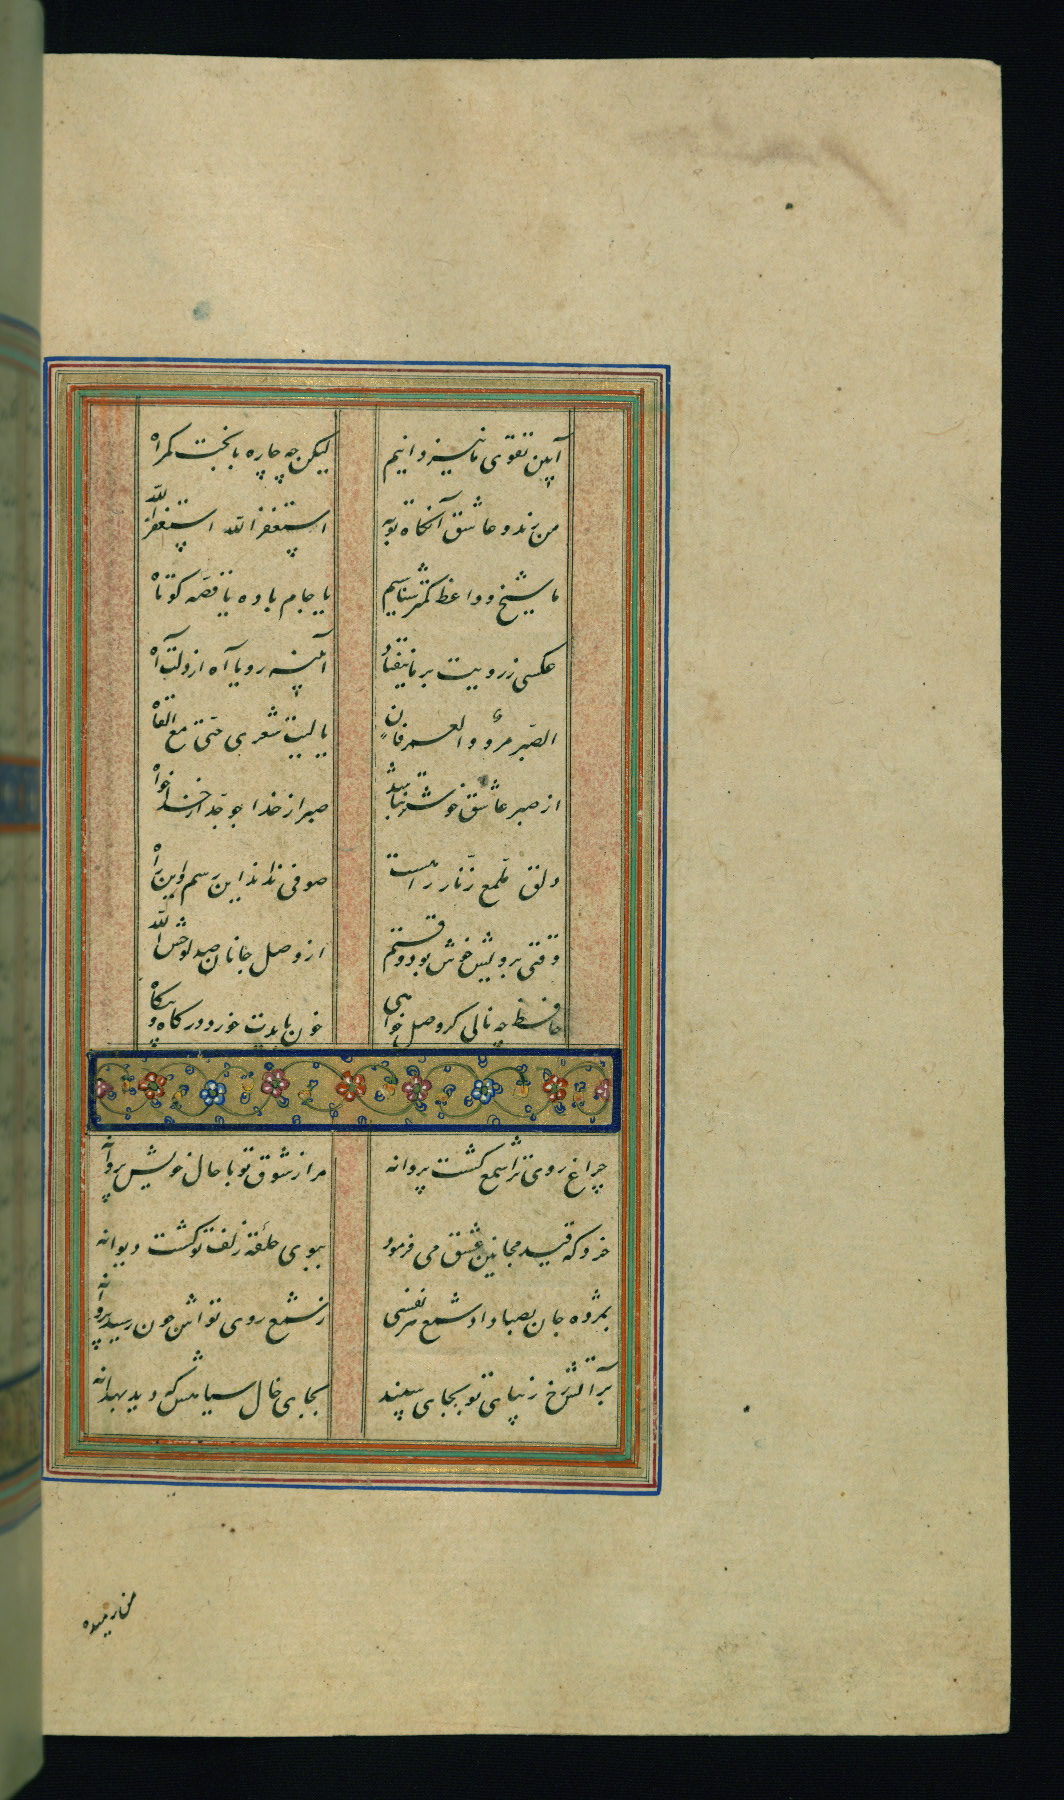 آیین تقوی ما نیز دانیم لیکن چه چاره با بخت کمراه
من رند و عاشق آنکاه توبه استغفر الله استغفر الله
ما شیخ و واعظ کمتر شناسیم یا جام باده یا قصه کوتاه
عکسی ز رویت بر ما نیفتاد آئینه رویا آه از دلت آه
الصبر مر و العمر فان یا لیت شعری حتی مع القاه
از صبر عاشق خوشتر نباشد صبر از خدا جو جدا از خدا خواه
دلق ملمع زنار راهست صوفی نداند این رسم و این راه
وقتی برویش خوش بود وقتم از وصل جانان صد لوحش الله
حافظ چه نالی کر وصل خواهی خون بایدت خورد در کاه و بیکاه
چراغ روی ترا شمع کشت پروانه مرا ز شوق تو با حال خویش پروا نه
خرد که قید مجانین عشق می فرمود ببوی حلقه زلف تو کشت دیوانه
بمژده جان بصبا داد شمع هر نفسی ز شمع روی تواش چون رسید پروانه
بر آتش رخ زیبای تو بجای سپند بجای خال سیاهش که دید به دانه
من رمیده